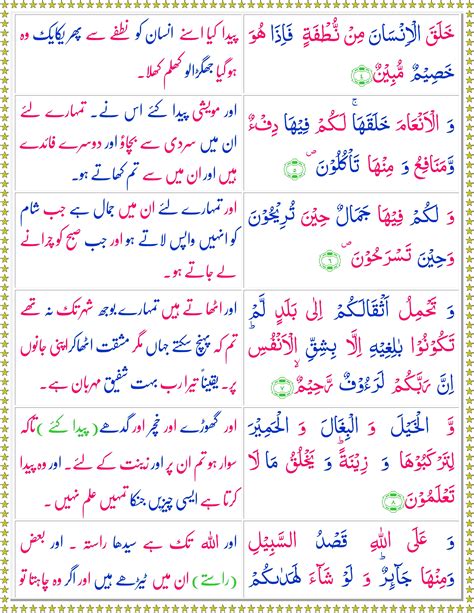 خَلَقَ الْاِنْسَانَ مِنْ نُّطْفَةٍ فَاِذَا هُوَ
خَصِيْمٌ مُّبِيْنٌ ﴿٤﴾
پیدا کیا اسنے انسان کو نطفے سے پھر یکایک وہ
ہو گیا جھگڑالو کھلم کھلا۔
وَ الْاَنْعَامَ خَلَقَهَا ۚ لَكُمْ فِيْهَا دِفْءٌ
وَّمَنَافِعُ وَ مِنْهَا تَاْكُلُوْنَ ۪ ﴿٥﴾
اور مویشی پیدا کئے اس نے۔ تمہارے لئے
ان میں سردی سے بچاؤ اور دوسرے فائدے
ہیں اور ان میں سے تم کھاتے ہو۔
وَ لَكُمْ فِيْهَا جَمَالٌ حِيْنَ تُرِيْحُوْنَ
وَحِيْنَ تَسْرَحُوْنَ ۪ ﴿٦﴾
اور تمہارے لئے ان میں جمال ہے جب شام
کو انہیں واپس لاتے ہو اور جب صبح کو چرانے
لے جاتے ہو۔
وَ تَحْمِلُ اَثْقَالَكُمْ اِلٰى بَلَدٍ لَّمْ
تَكُوْنُوْا بٰلِغِيْهِ اِلَّا بِشِقِّ الْاَنْفُسِ ؕ
اِنَّ رَبَّكُمْ لَرَءُوْفٌ رَّحِيْمٌ ۙ ﴿٧﴾
اور اٹھاتے ہیں تمہارے بوجھ شہر تک نہ تھے
تم کہ پہنچ سکتے جہاں مگر مشقت اٹھا کر اپنی جانوں
پر۔ یقیناً تیرا رب بہت شفیق مہربان ہے۔
وَّ الْخَيْلَ وَ الْبِغَالَ وَ الْحَمِيْرَ
لِتَرْكَبُوْهَا وَ زِيْنَةً ؕ وَ يَخْلُقُ مَا لَا
تَعْلَمُوْنَ ﴿٨﴾
اور گھوڑے اور خچر اور گدھے (پیدا کئے) تاکہ
سوار ہو تم ان پر اور زینت کے لئے۔ اور وہ پیدا
کرتا ہے ایسی چیزیں جنکا تمہیں علم نہیں۔
وَ عَلَى اللّٰهِ قَصْدُ السَّبِيْلِ
وَمِنْهَا جَآئِرٌ ؕ وَ لَوْ شَآءَ لَهَدٰىكُمْ
اور اللہ تک ہے سیدھا راستہ۔ اور بعض
(راستے) ان میں ٹیڑھے ہیں اور اگر وہ چاہتا تو